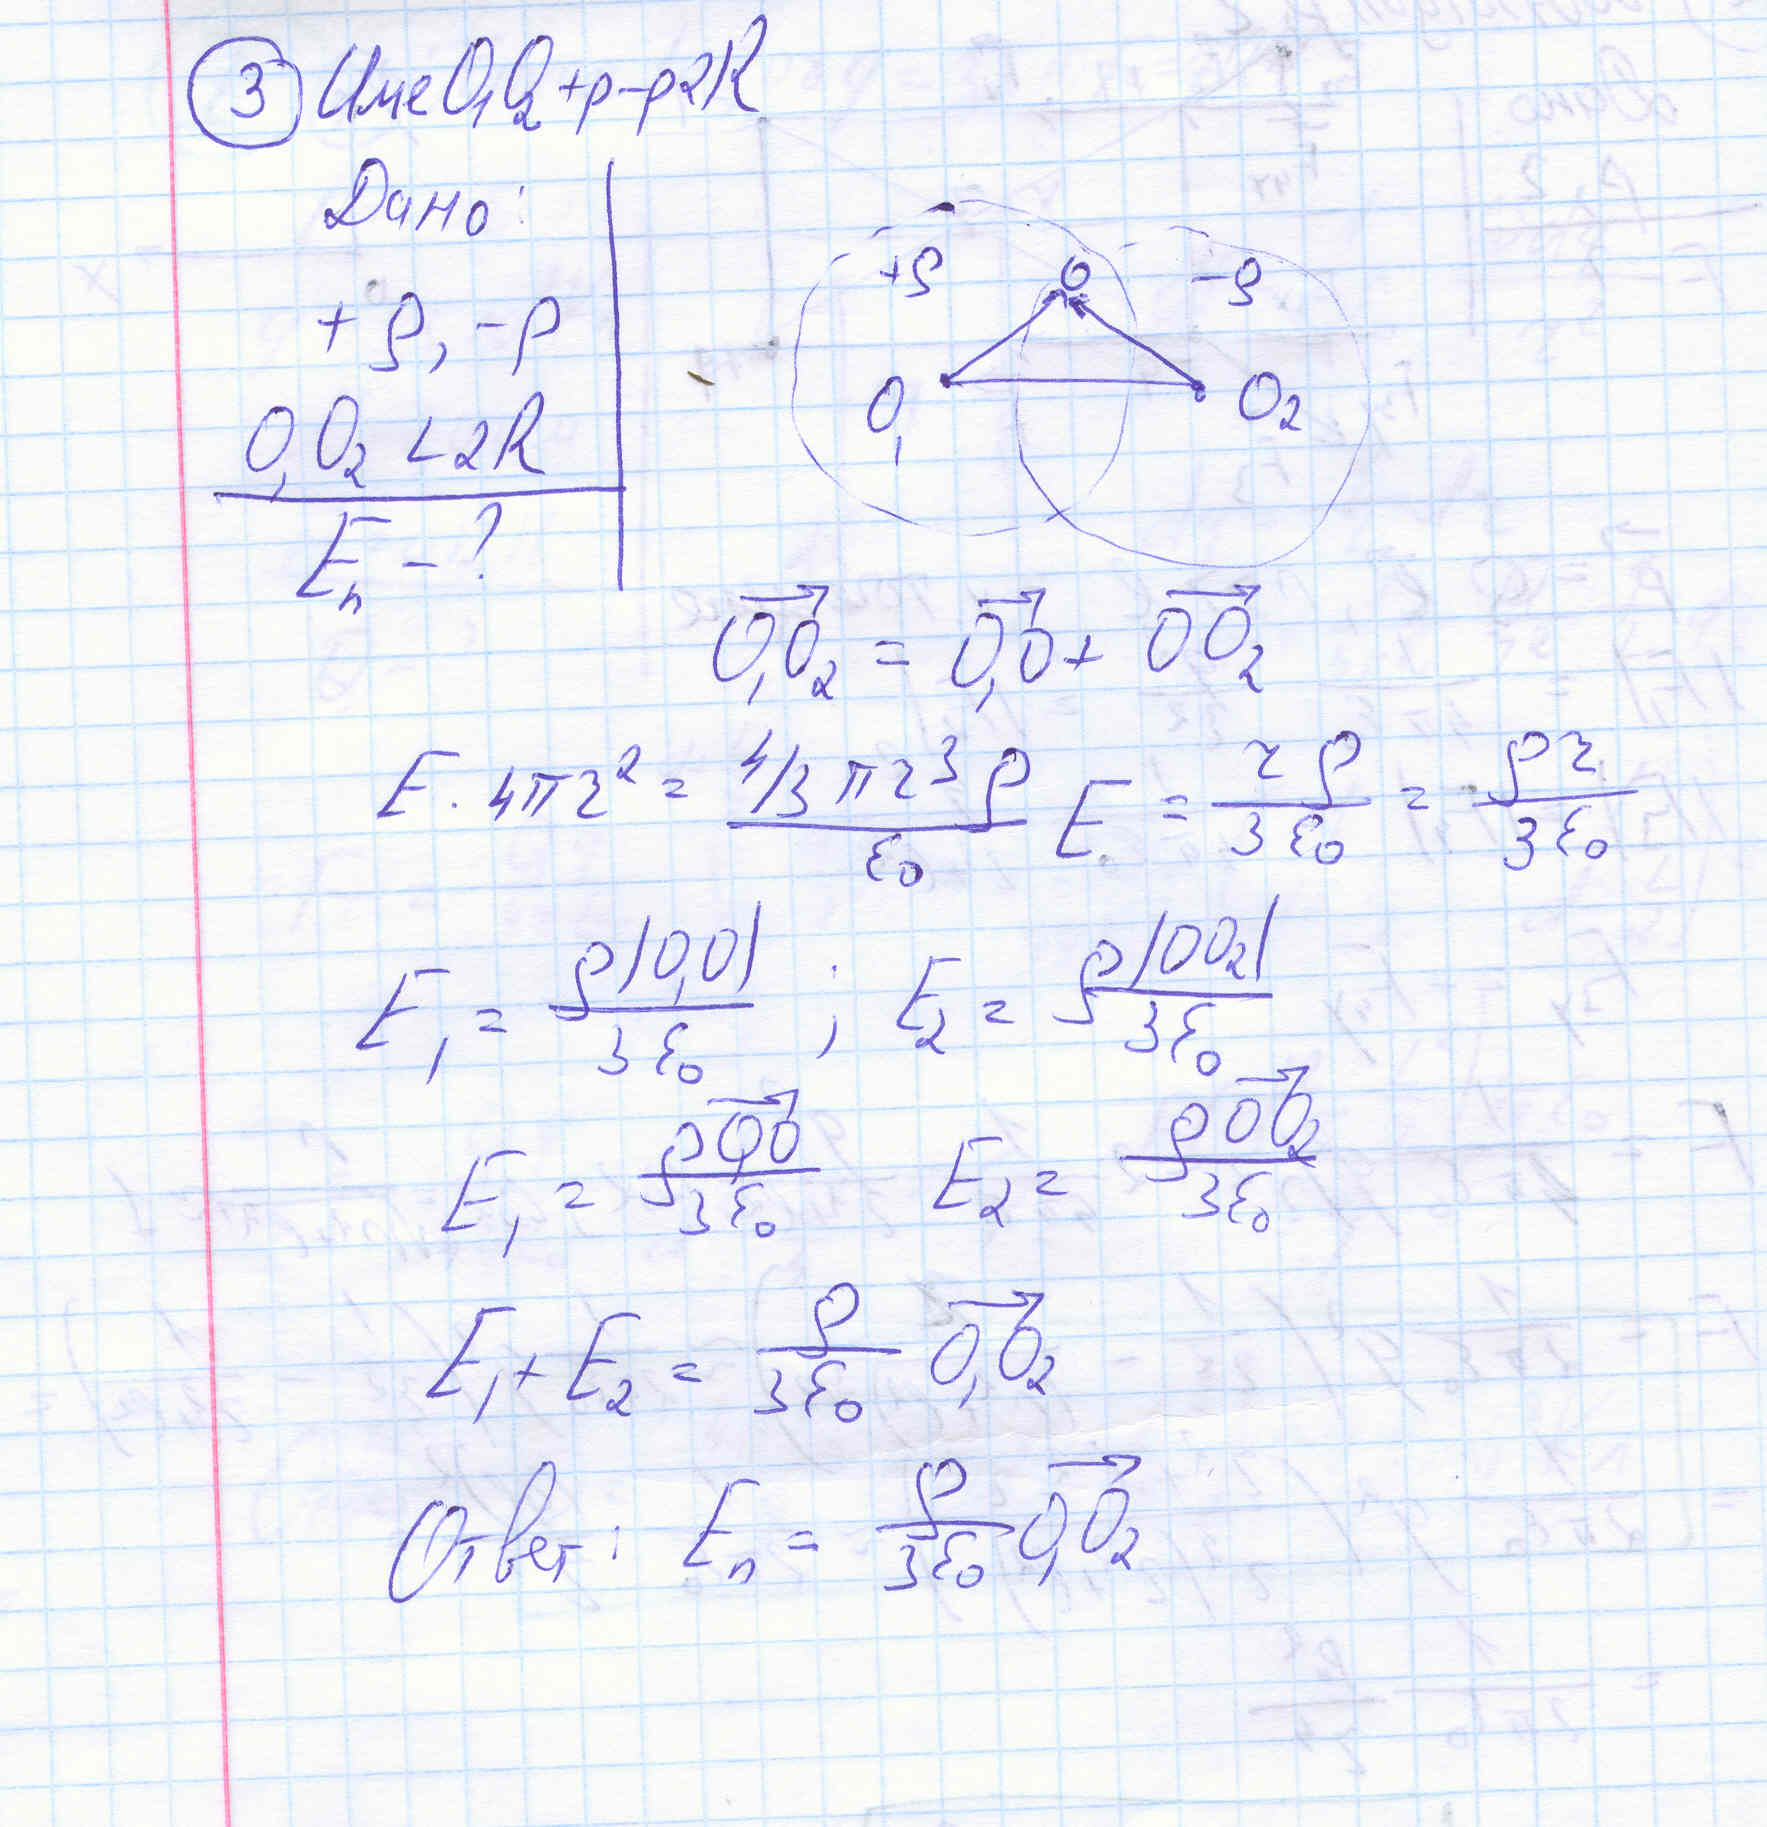 3 Име O₁O₂ +ρ -ρ 2R
Дано:
+ρ, -ρ
O₁O₂ < 2R
Eₙ - ?
+ρ O -ρ
O₁ O₂
O₁O₂ = O₁O + OO₂
E · 4πr² = 4/3 πr³ρ / ε₀ E = rρ / 3ε₀ = ρr / 3ε₀
E₁ = ρ|O₁O| / 3ε₀ ; E₂ = ρ|OO₂| / 3ε₀
E₁ = ρO₁O / 3ε₀ E₂ = ρOO₂ / 3ε₀
E₁ + E₂ = ρ / 3ε₀ O₁O₂
Ответ: Eₙ = ρ / 3ε₀ O₁O₂